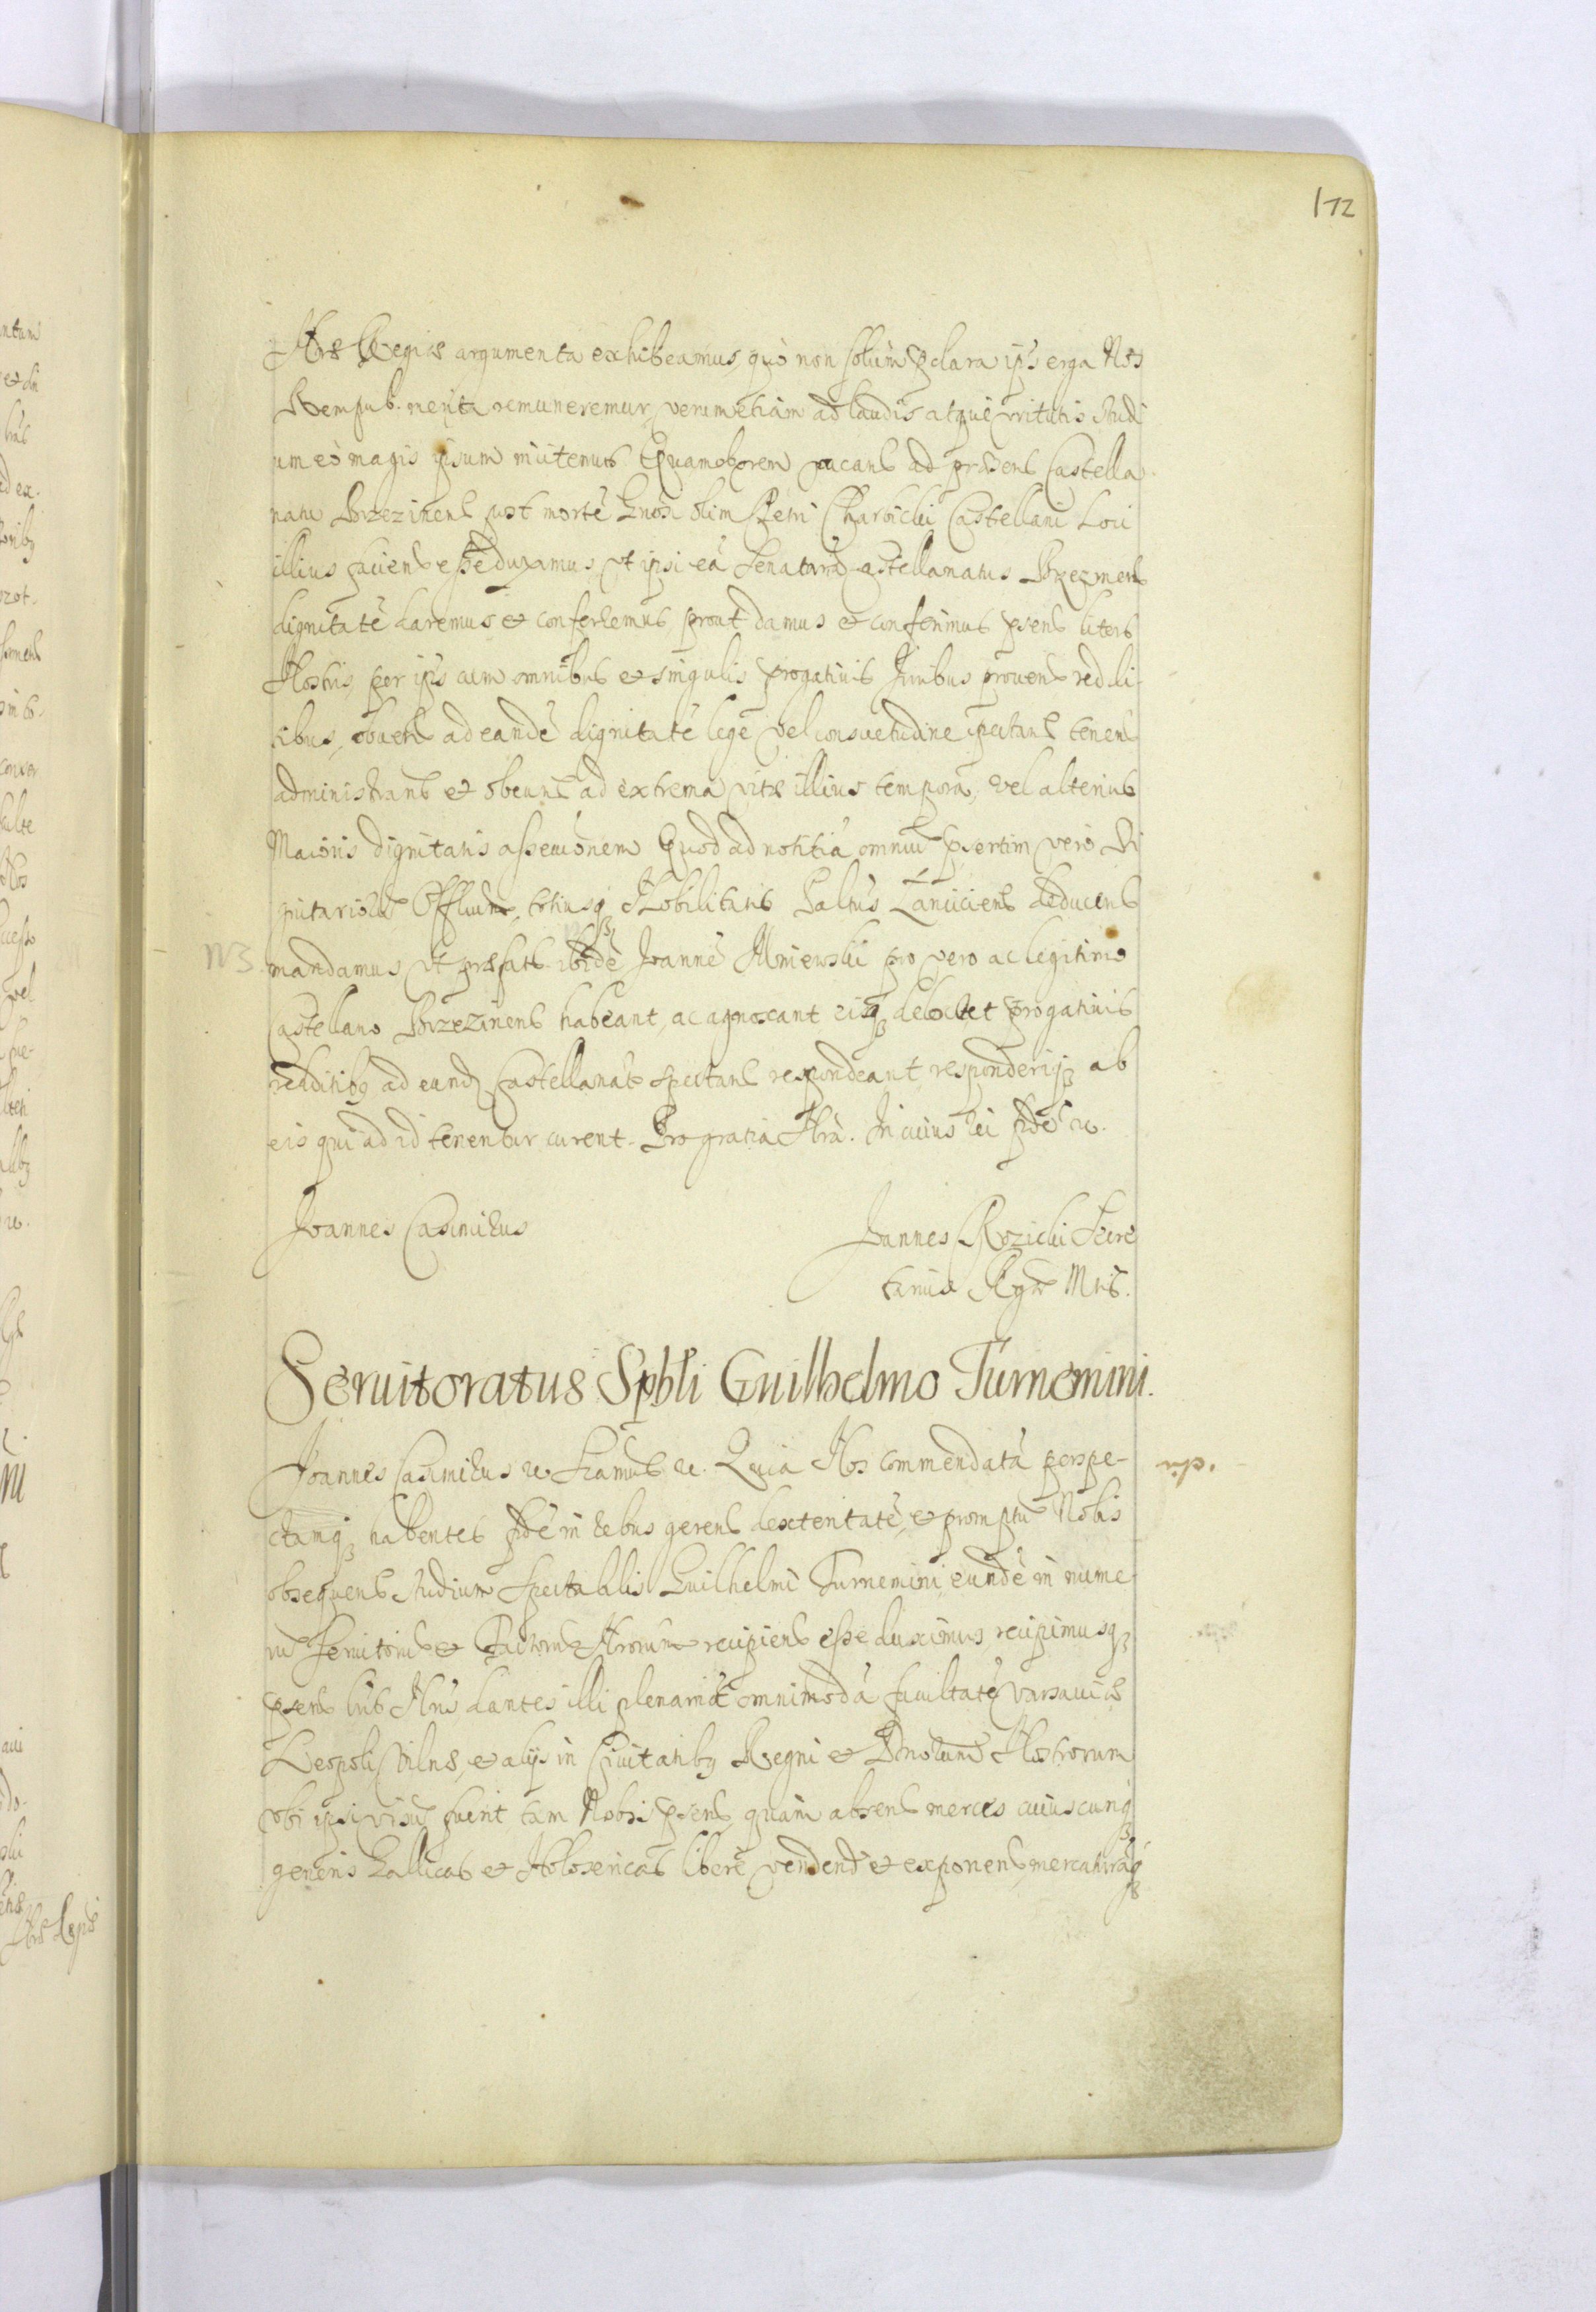 172
Nrae Regiae argumenta exhibeamus, quò non solùm pclara ips erga Nos
Rempub. merita remuneremur, verumetiàm ad laudis atque vrtutis studi
um eò magis ipsum incitemus Quamobrem vacans ad praesens Castella
natu Brzezinens post mortē Gnosi olim Petri Charbicki Castellani Loci
illius faciens esse duximus, vt ipsi eā Senatoriā Castellanatus Brzezinens
dignitatē daremus et conferremus prout damus et conferimus psens literis
Nostris, per ips cum omnibus et singulis progatiuis Juribus prouent reddi
tibus, obuens ad eandē dignitatē lege vel consuetudine spectans tenens
administrans et obeuns ad extrema vitae illius tempora, vel alterius
Maioris dignitatis assecuōnem Quod ad notitiā omniū psertim verò Di
gnitarioru Offlium, totiusq Nobilitatis Paltus Łanciciens deducens
N3
mandamus vt praefatu ibidē Joannē Mniewski pro vero ac legitimo
Castellano Brzezinens habeant, ac agnoscant eiq de et progatiuis
redditibq ad eund Castellanat spectans respondeant, responderiq ab
eis qui ad id tenentur curent. Pro gratia Nra. In cuius rei fidē etc.
Joannes Casimirus
Joannes Rozicki Secre
tarius Rgae Mtis.
Seruitoratus Spbli Guilhelmo Turnemini.
Joannes Casimirus etc. Sṡamus etc. Quia Nos commendatā perspe-
ctamq habentes fidē in rebus gerens dexteritatē, et promptū Nobis
obsequens studium Spectabilis Guilhelmi Turnemini, eundē in nume
rū Seruitoru et Factoru Nrorum recipiens esse duximus, recipimusq
psens lris Nris dantes illi plenariā et omnimodā facultatē Varsauiae
Leopoli Vilnae, et alijs in Ciuitatibq Regni et Dnorum Nostrorum
vbi ipsi visū fuerit tam Nobis psens, quàm absens merces cuiuscunq
generis Gallicas et Holosericas liberè vendend et exponens, mercaturāq